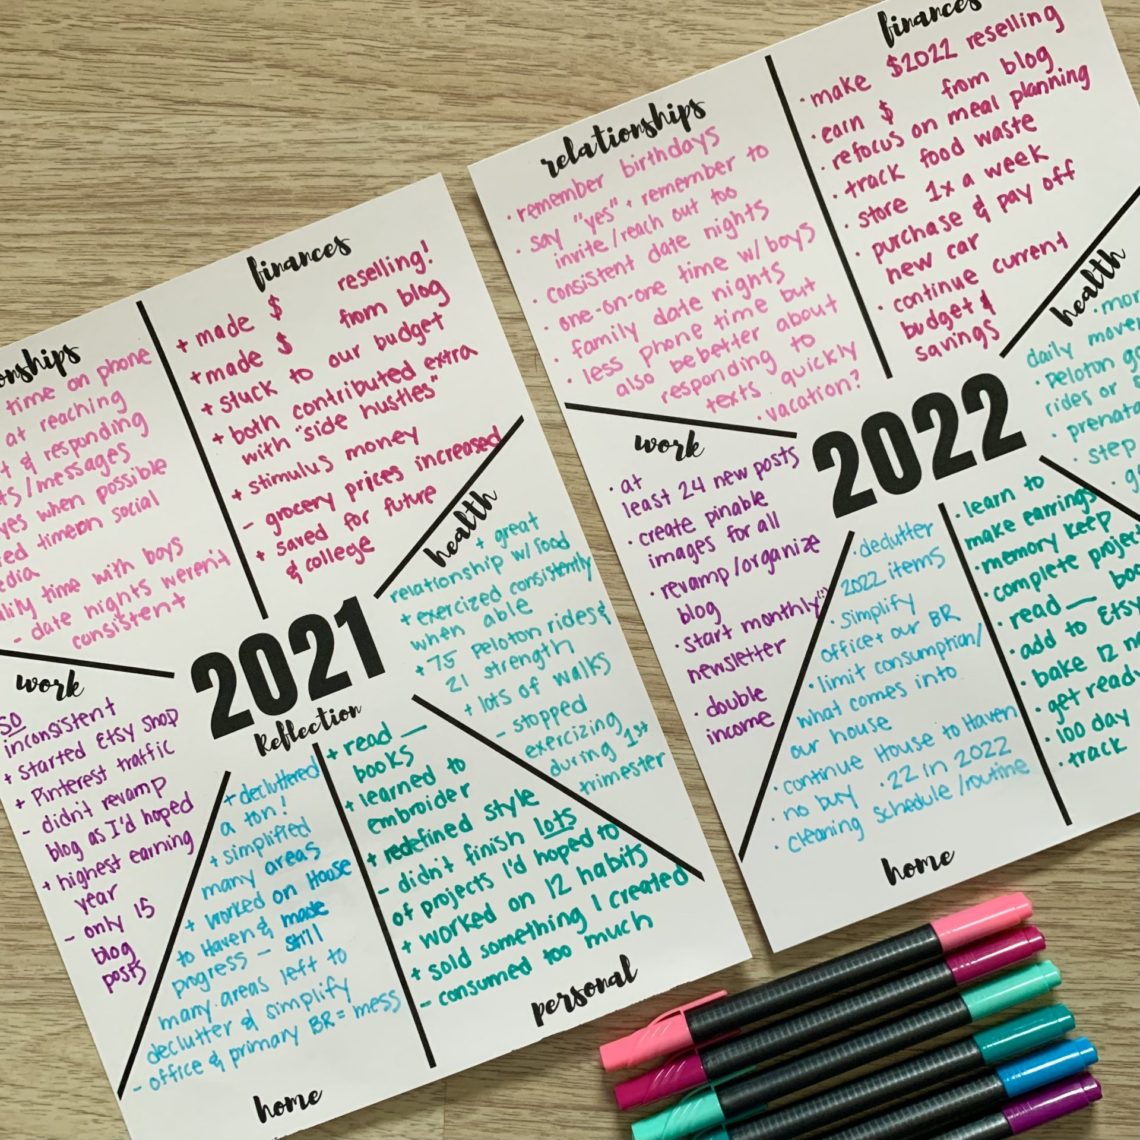 finances
+ made $ reselling!
+ made $ from blog
+ stuck to our budget
+ both contributed extra
with "side hustles"
+ stimulus money
- grocery prices increased
+ saved for future
& college
time on phone
at reaching
& responding
/messages
when possible
social
time with boys
- date nights weren't
consistent
health
+ great
relationship w/food
+ exercized consistently
when able
+ 75 peloton rides &
21 strength
+ lots of walks
- stopped
exercizing
during 1st
trimester
2021
Reflection
work
so
inconsistent
+ started Etsy shop
+ Pinterest traffic
- didn't revamp
blog as I'd hoped
+ highest earning
year
- only 15
blog
posts
+ decluttered
a ton!
+ simplified
many areas
+ worked on House
to Haven & made
progress - still
many areas left to
declutter & simplify
- office & primary BR = mess
home
+ read —
books
+ learned to
embroider
+ redefined style
- didn't finish lots
of projects I'd hoped to
+ worked on 12 habits
+ sold something I created
- consumed too much
personal
relationships
· remember birthdays
· say "yes" + remember to
invite/reach out too
· consistent date nights
· one-on-one time w/boys
· family date nights
· less phone time but
also be better about
responding to
texts quickly
· vacation?
finances
· make $2022 reselling
· earn $ from blog
· refocus on meal planning
· track food waste
· store 1x a week
· purchase & pay off
new car
· continue current
budget &
savings
health
daily
· Peloton
rides or
· step
2022
work
· at
least 24 new posts
· create pinable
images for all
· revamp/organize
blog
· start monthly(ish)
newsletter
· double
income
· declutter
2022 items
· simplify
office + our BR
· limit consumption/
what comes into
our house
· continue House to Haven
· no buy · 22 in 2022
· cleaning schedule/routine
home
· learn to
make earrings
· memory keep
· complete
· read —
· add to Etsy
· bake 12
· get
· 100 day
· track